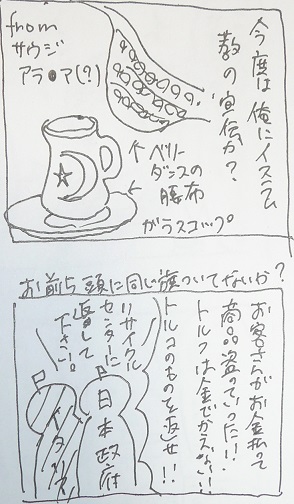 今度は俺にイスラム
教の宣伝か?
from
サウジ
アラ●ア(?)
↑ベリー
ダンスの
腰布
ガラスコップ
お前ら頭に同じ旗ついてないか?
お客さんがお金払って
商品盗っていった!!
トルコのものを返せ!!
リサイクル
センターに
返して
下さい!
日本政府
イスラム